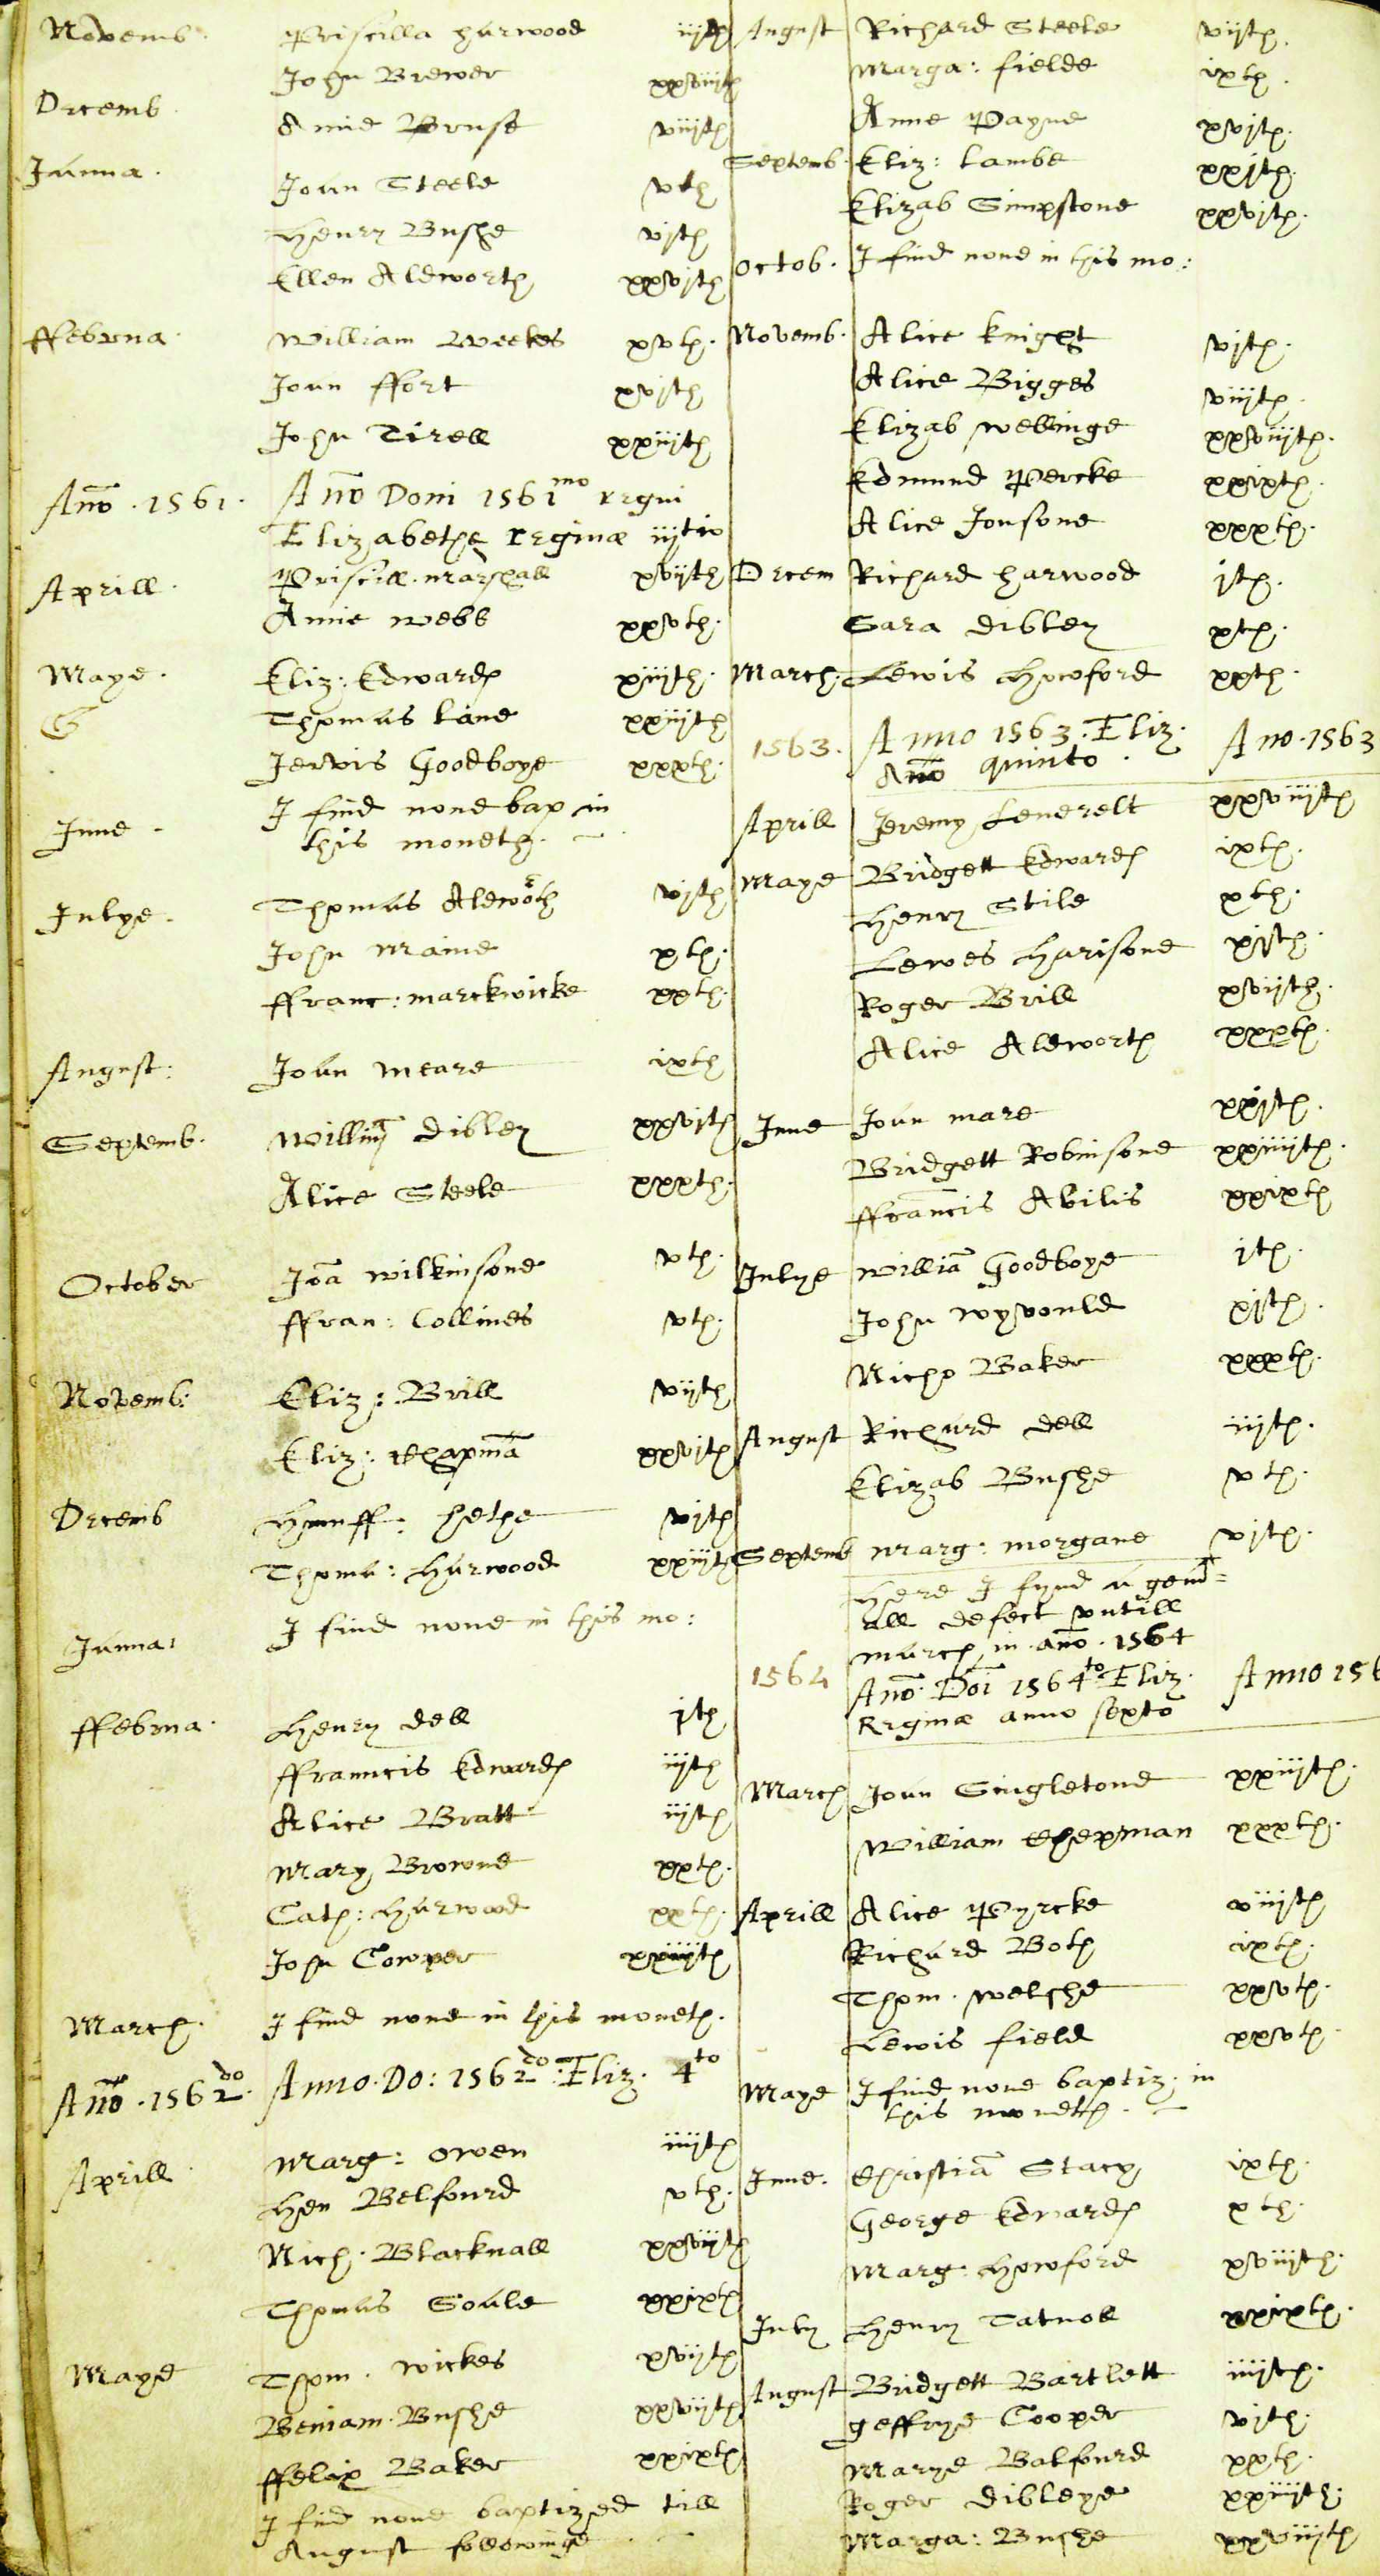 Novemb. Priscilla harwood iijth
John Brewer xxviijth
Decemb. Amie Pruse viijth
Janua. Joan Steele vth
Henry Bushe vjth
Ellen Aldworth xxvjth
ffebrua. William Weekes xvth.
Joan ffort xvjth
John Tirell xxiijth
Ano. 1561. Ano Doni 1561mo regni
Elizabethe reginæ iijtio
Aprill. Priscill. marshall xvijth
Amie webb xxvth.
Maye. Eliz: Edwards xiijth.
Thomas Lane xxiijth
Jervis Goodboye xxxth.
June. I find none bap in
this moneth.
Julye. Thomas Aldworth vjth
John maine xth.
ffranc: marckwicke xxth.
August: Joan meare ixth
Septemb. Willim dibley xxvjth
Alice Steele xxxth.
October Joa wilkinsone vth.
ffran: Collines vth.
Novemb: Eliz: Brill vijth
Eliz: Chapma xxvjth
Decemb Humff: hethe vjth
Thoma: Harwood xxiijth
Janua: I find none in this mo:
ffebrua. Henry dell jth
ffranncis Edwards iijth
Alice Bratt iijth
Mary Browne xxth.
Cath: Harwood xxth.
John Cowper xxiiijth
March. I find none in this moneth.
Ano. 1562do. Anno. Do: 1562do: Eliz. 4to
Aprill. Marg: Owen iiijth
Hen Belfourd vth.
Nich. Blacknall xxviijth
Thomas Soale xxixth
Maye Thom. wickes xvijth
Beniam. Bushe xxvijth
ffelix Baker xxixth
I find none baptized till
August followinge
August Richard Steele vijth.
Marga: fielde ixth.
Anne Payne xvjth.
Septemb. Eliz: Lambe xxjth.
Elizab Simpstone xxvjth.
Octob. I find none in this mo:
Novemb. Alice Knight vjth.
Alice Bigges viijth.
Elizab Wellinge xxviijth.
Edmund Percke xxixth.
Alice Jonsone xxxth.
Decem Richard harwood jth.
Sara dibley xth.
March. Lewis Howford xxth.
1563. Anno 1563. Eliz. Ano. 1563
Ano quinto.
Aprill Jeremy Leverelt xxviijth
Maye Bridgett Edwards ixth.
Henry Stile xth.
Lewes Harisone xjth.
Roger Brill xvijth.
Alice Aldworth xxxth.
June Joan mare xxjth.
Bridgett Robinsone xxiiijth.
ffrancis Abilis xxixth
Julye Willia Goodboye jth.
John wyvould xjth.
Nicho Baker xxxth.
August Richard dell iijth.
Elizab Bushe vth.
Septemb Marg: morgane vjth.
Here I fynd a gen
all defect untill
march in ano. 1564
1564 Ano. Doi 1564to Eliz. Anno 156
Reginæ anno sexto
March Joan Singletone xxiijth.
William Chepman xxxth.
Aprill Alice Pyrcke viijth
Richard Both ixth.
Thom. Welshe xxvth.
Lewis field xxvth.
Maye I find none baptiz. in
this moneth.
June. Christia Stacy ixth.
George Edwards xth.
Marg. Howford xviijth.
July Henry Tatnoll xxixth.
August Bridgett Bartlett iiijth.
Geffrye Cooper vjth.
Marye Balfourd xxth.
Roger dibleye xxiiijth.
Marga: Bushe xxviijth